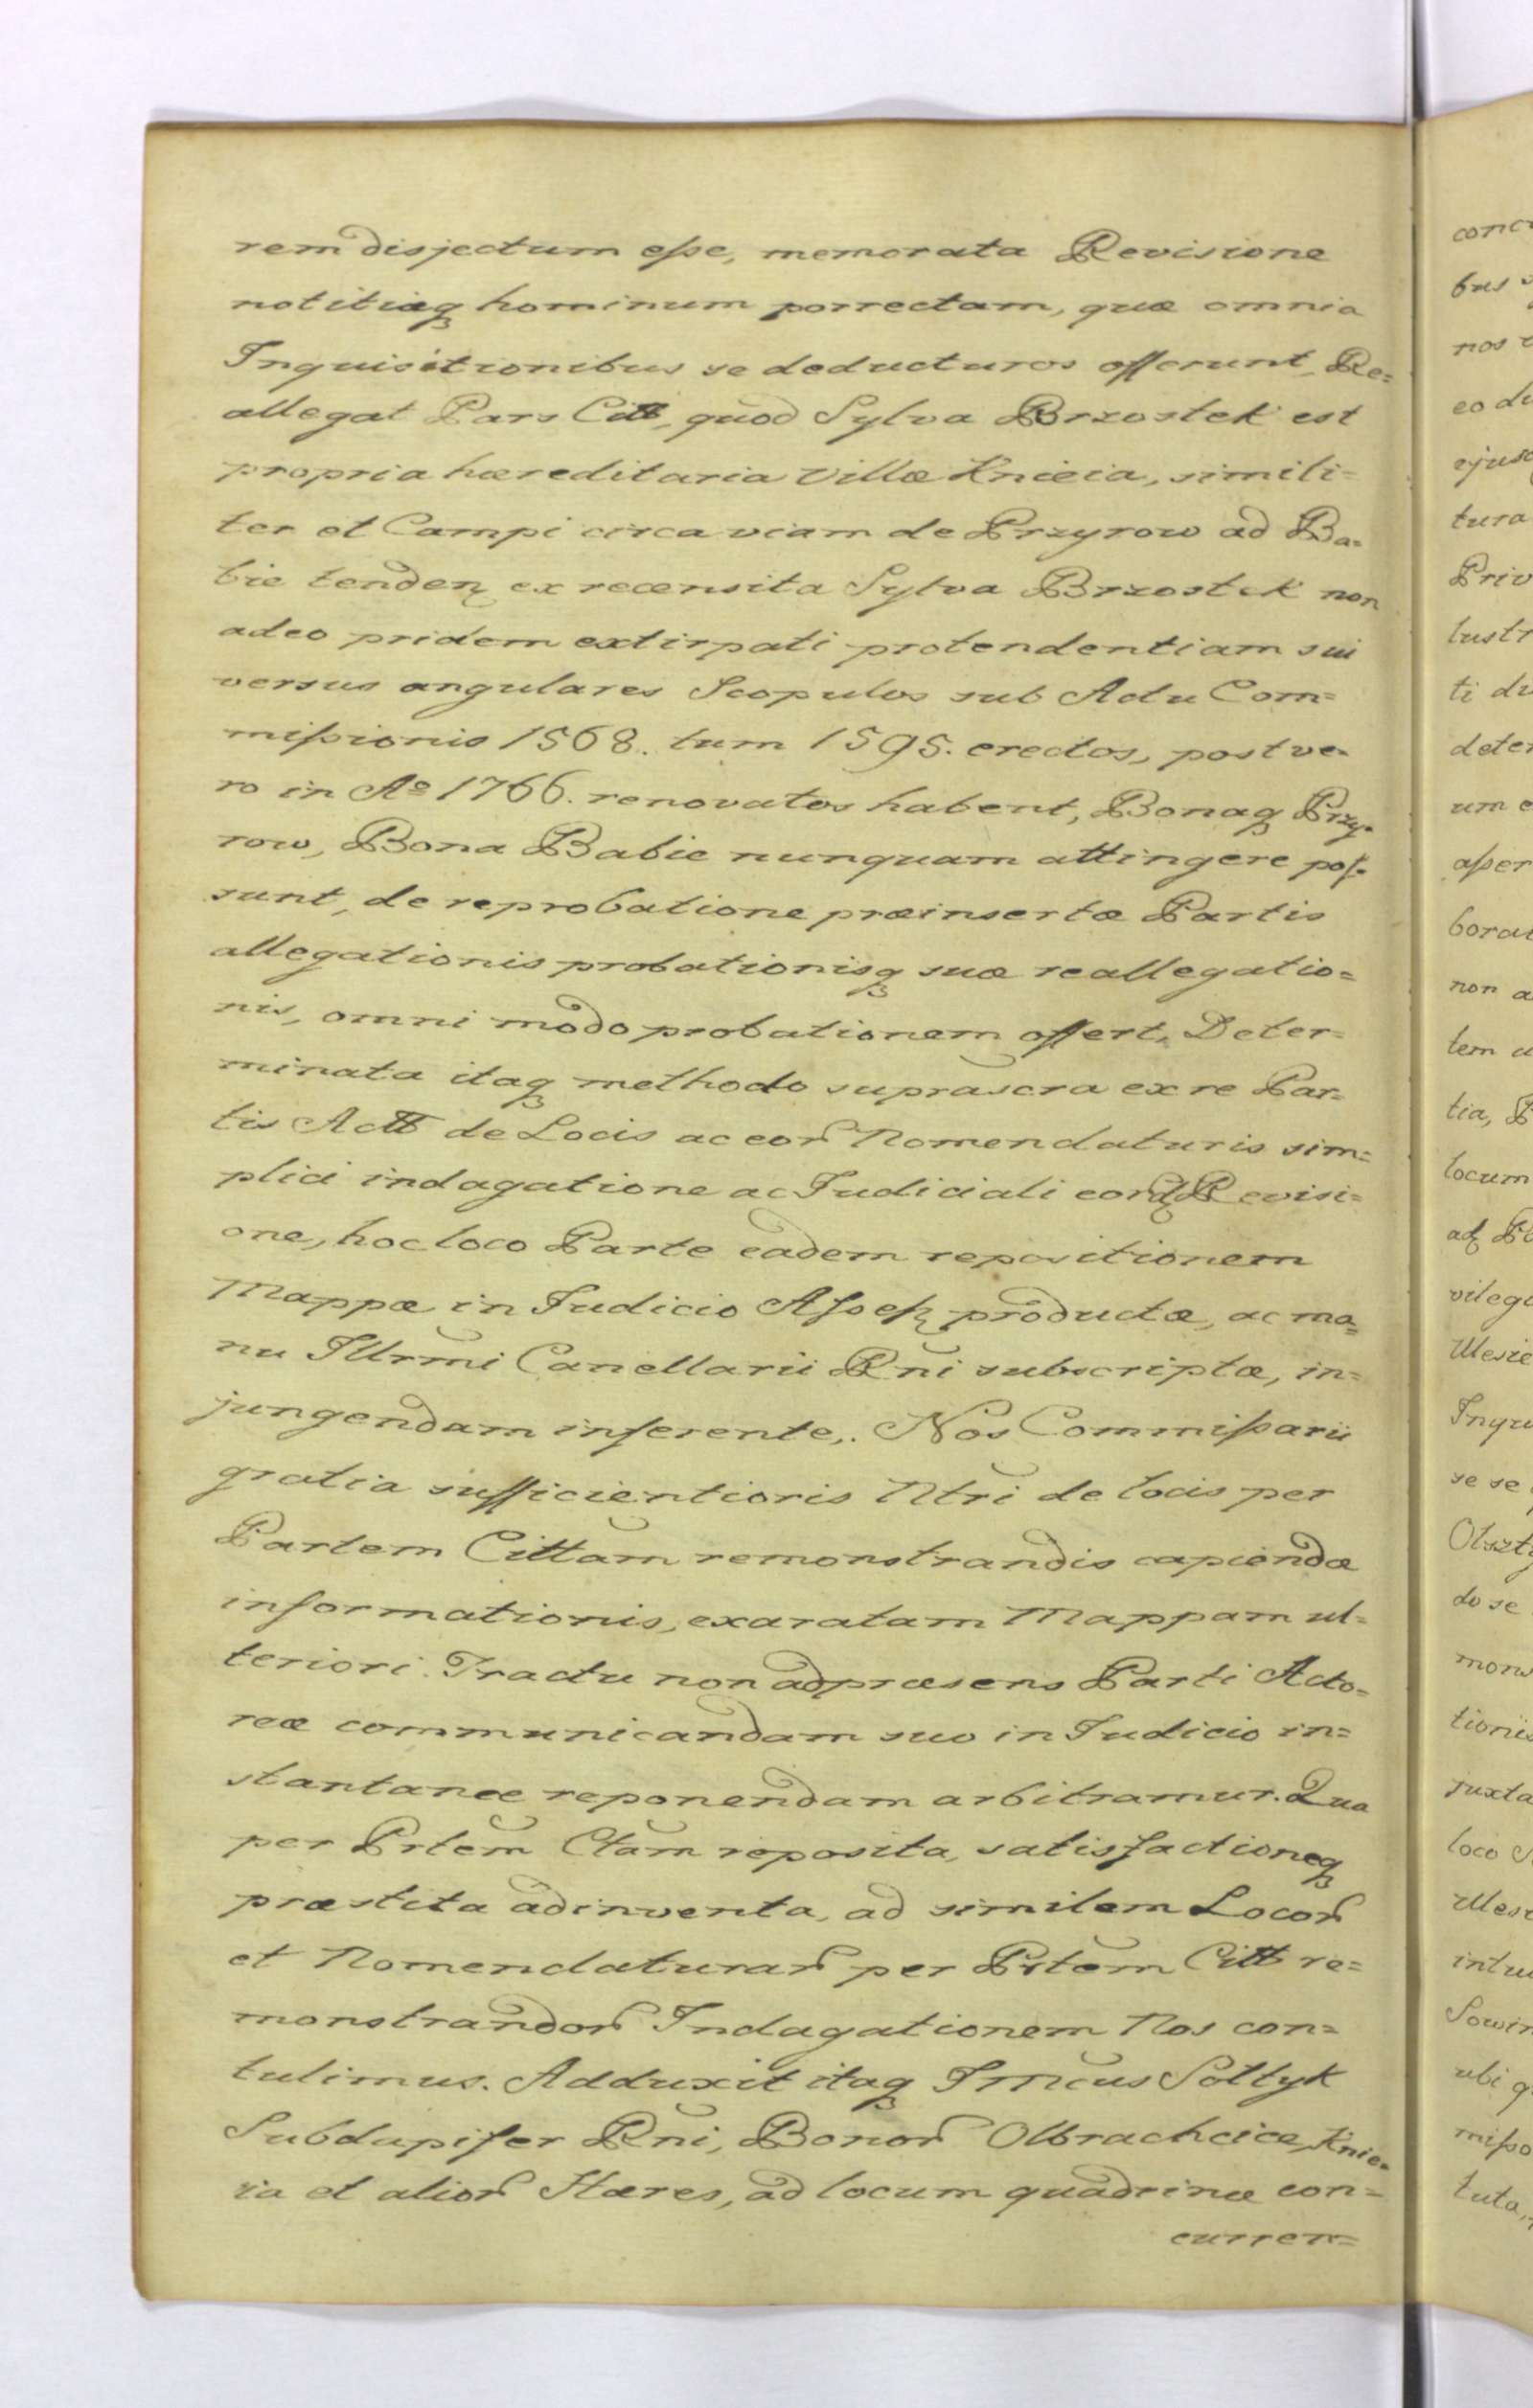 rem disjectum eſse, memorata Revisione
notitiaq hominum porrectam, quæ omnia
Inquisitionibus se deducturos offerunt, Re=
allegat Pars Citt, quod Sylva Brzostek est
propria hæreditaria Villæ Knieia, simili=
ter et Campi circa viam de Przyrow ad Ba=
bie tenden ex recensita Sylva Brzostek non
adeo pridem extirpati protendentiam sui
versus angulares Scopulos sub Actu Com=
miſsionis 1568. tum 1595. erectos, post ve=
ro in Aº 1766. renovatos habent, Bonaq Przy=
row, Bona Babie nunquam attingere poſ=
sunt, de reprobatione præinsertæ Partis
allegationis probationisq suæ reallegatio=
nis, omni modo probationem offert, Deter=
minata itaq methodo suprascra ex re Par=
tis Actt de Locis ac eor Nomenclaturis sim=
plici indagatione ac Judiciali eord Revisi=
one, hoc loco Parte eadem repositionem
Mappæ in Judicio Aſseſs productæ, ac ma=
nu Illrmi Cancellarii Rni subscriptæ, in=
jungendam inferente,. Nos Commiſsarii
gratia sufficientioris Ntri de locis per
Partem Cittam remonstrandis capiendæ
informationis, exaratam Mappam ul=
teriori Tractu non ad præsens Parti Acto=
reæ communicandam suo in Judicio in=
stantanee reponendam arbitramur. Qua
per Prtem Ctam reposita, satisfactioneq
præstita adinventa, ad similem Locor
et Nomenclaturar per Prtem Citt re=
monstrandor Indagationem Nos con=
tulimus. Adduxit itaq Imcus Soltyk
Subdapifer Rni, Bonor Olbrachcice, Knie=
ia et alior Hæres, ad locum quadrinæ con=
curren=
conc
bus
nos
eo de
ejusd
tura
Priv
lustr
ti du
deter
um
aſser
borat
non a
tem
tia,
locum
vilegi
Inqu
se se
Olszt
do se
mons
tionis
juxta
loco
intu
ubi q
miſso
tuta